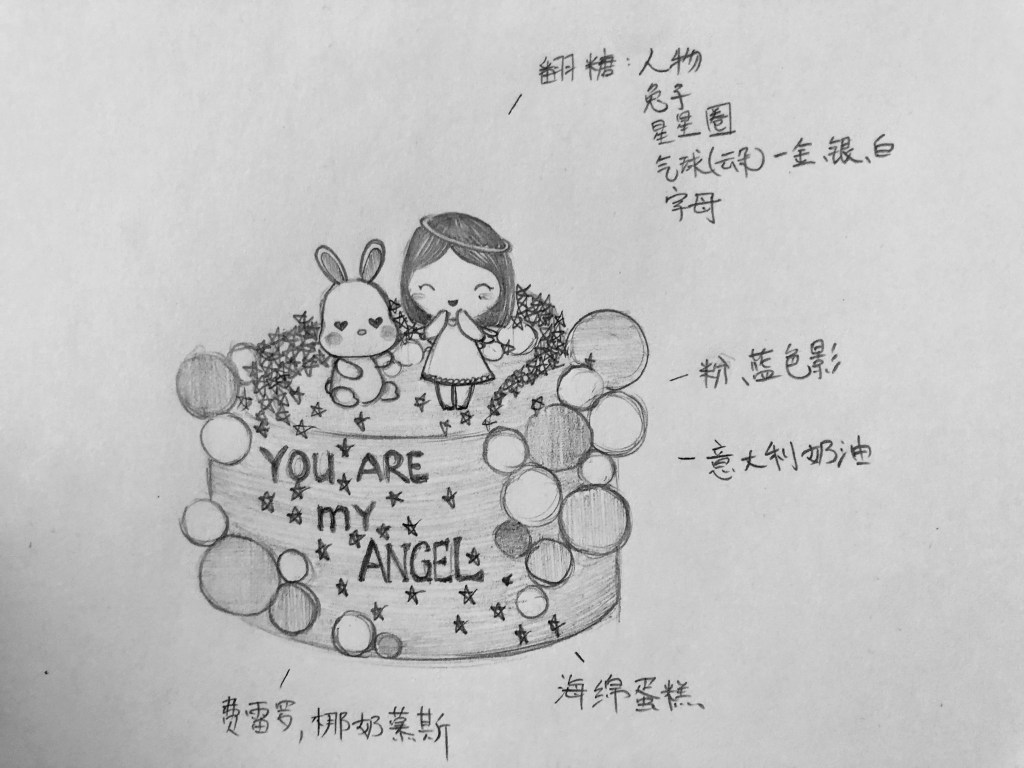 翻糖：人物
兔子
星星圈
气球(云朵)—金、银、白
字母
—粉、蓝色影
—意大利奶油
YOU ARE
my
ANGEL
海绵蛋糕
费雷罗，椰奶慕斯